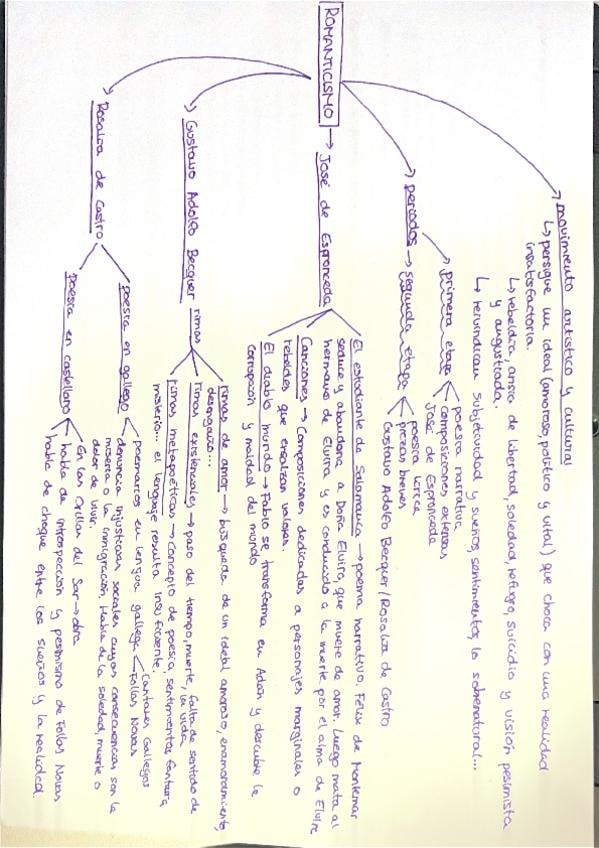 movimiento artístico y cultural
↳ persigue un ideal (amoroso, político y vital) que choca con una realidad
insatisfactoria.
↳ rebeldía, ansia de libertad, soledad, refugio, suicidio y visión pesimista
y angustiada.
↳ reivindican subjetividad y sueños, sentimientos, lo sobrenatural...
primera etapa
poesía narrativa
composiciones extensas
José de Espronceda
periodos → segunda etapa
poesía lírica
piezas breves
Gustavo Adolfo Becquer / Rosalía de Castro
ROMANTICISMO → José de Espronceda
El estudiante de Salamanca → poema narrativo, Félix de Montemar
seduce y abandona a Doña Elvira, que muere de amor. Luego mata al
hermano de Elvira y es conducido a la muerte por el alma de Elvira
Canciones → Composiciones dedicadas a personajes marginales o
rebeldes que ensalzan valores.
El diablo mundo → Fabio se transforma en Adán y descubre la
corrupción y maldad del mundo
Gustavo Adolfo Becquer rimas
rimas de amor → búsqueda de un ideal amoroso, enamoramiento,
desengaño...
rimas existenciales → paso del tiempo, muerte, falta de sentido de
la vida
rimas metapoéticas → concepto de poesía, sentimientos fantasía
misterio... el lenguaje resulta insuficiente.
Rosalía de Castro
poesía en gallego
poemarios en lengua gallega
Cantares Gallegos
Follas Novas
denuncia injusticias sociales cuyas consecuencias son la
miseria o la inmigración. Habla de la soledad, muerte o
dolor de vivir.
poesía en castellano
En las Orillas del Sar → obra
habla de introspección y pesimismo de Follas Novas
habla de choque entre los sueños y la realidad.